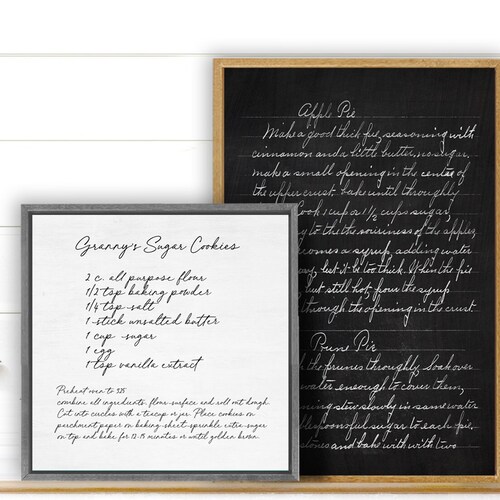 Granny's Sugar Cookies
2 c. all purpose flour
1/2 tsp baking powder
1/4 tsp salt
1 stick unsalted butter
1 cup sugar
1 egg
1 tsp vanilla extract
Preheat oven to 325
combine all ingredients, flour surface and roll out dough.
Cut into circles with a teacup or jar. Place cookies on
parchment paper on baking sheet sprinkle extra sugar
on top and bake for 12-15 minutes or until golden brown.
Apple Pie
Make a good thick pie, seasoning with
cinnamon and a little butter, no sugar,
make a small opening in the center of
the upper crust. bake until throughly
cook 1 cup or 1/2 cups sugar,
to the the nouriness of the apples,
comes a syrup, adding water
, but it be too thick. When the pie
but still hot, pour the syrup
through the opening in the crust.
Prune Pie
the prunes throughly, Soak over
water enough to cover them,
slowly in same water
spoonful sugar to each pie,
stones and bake with with two